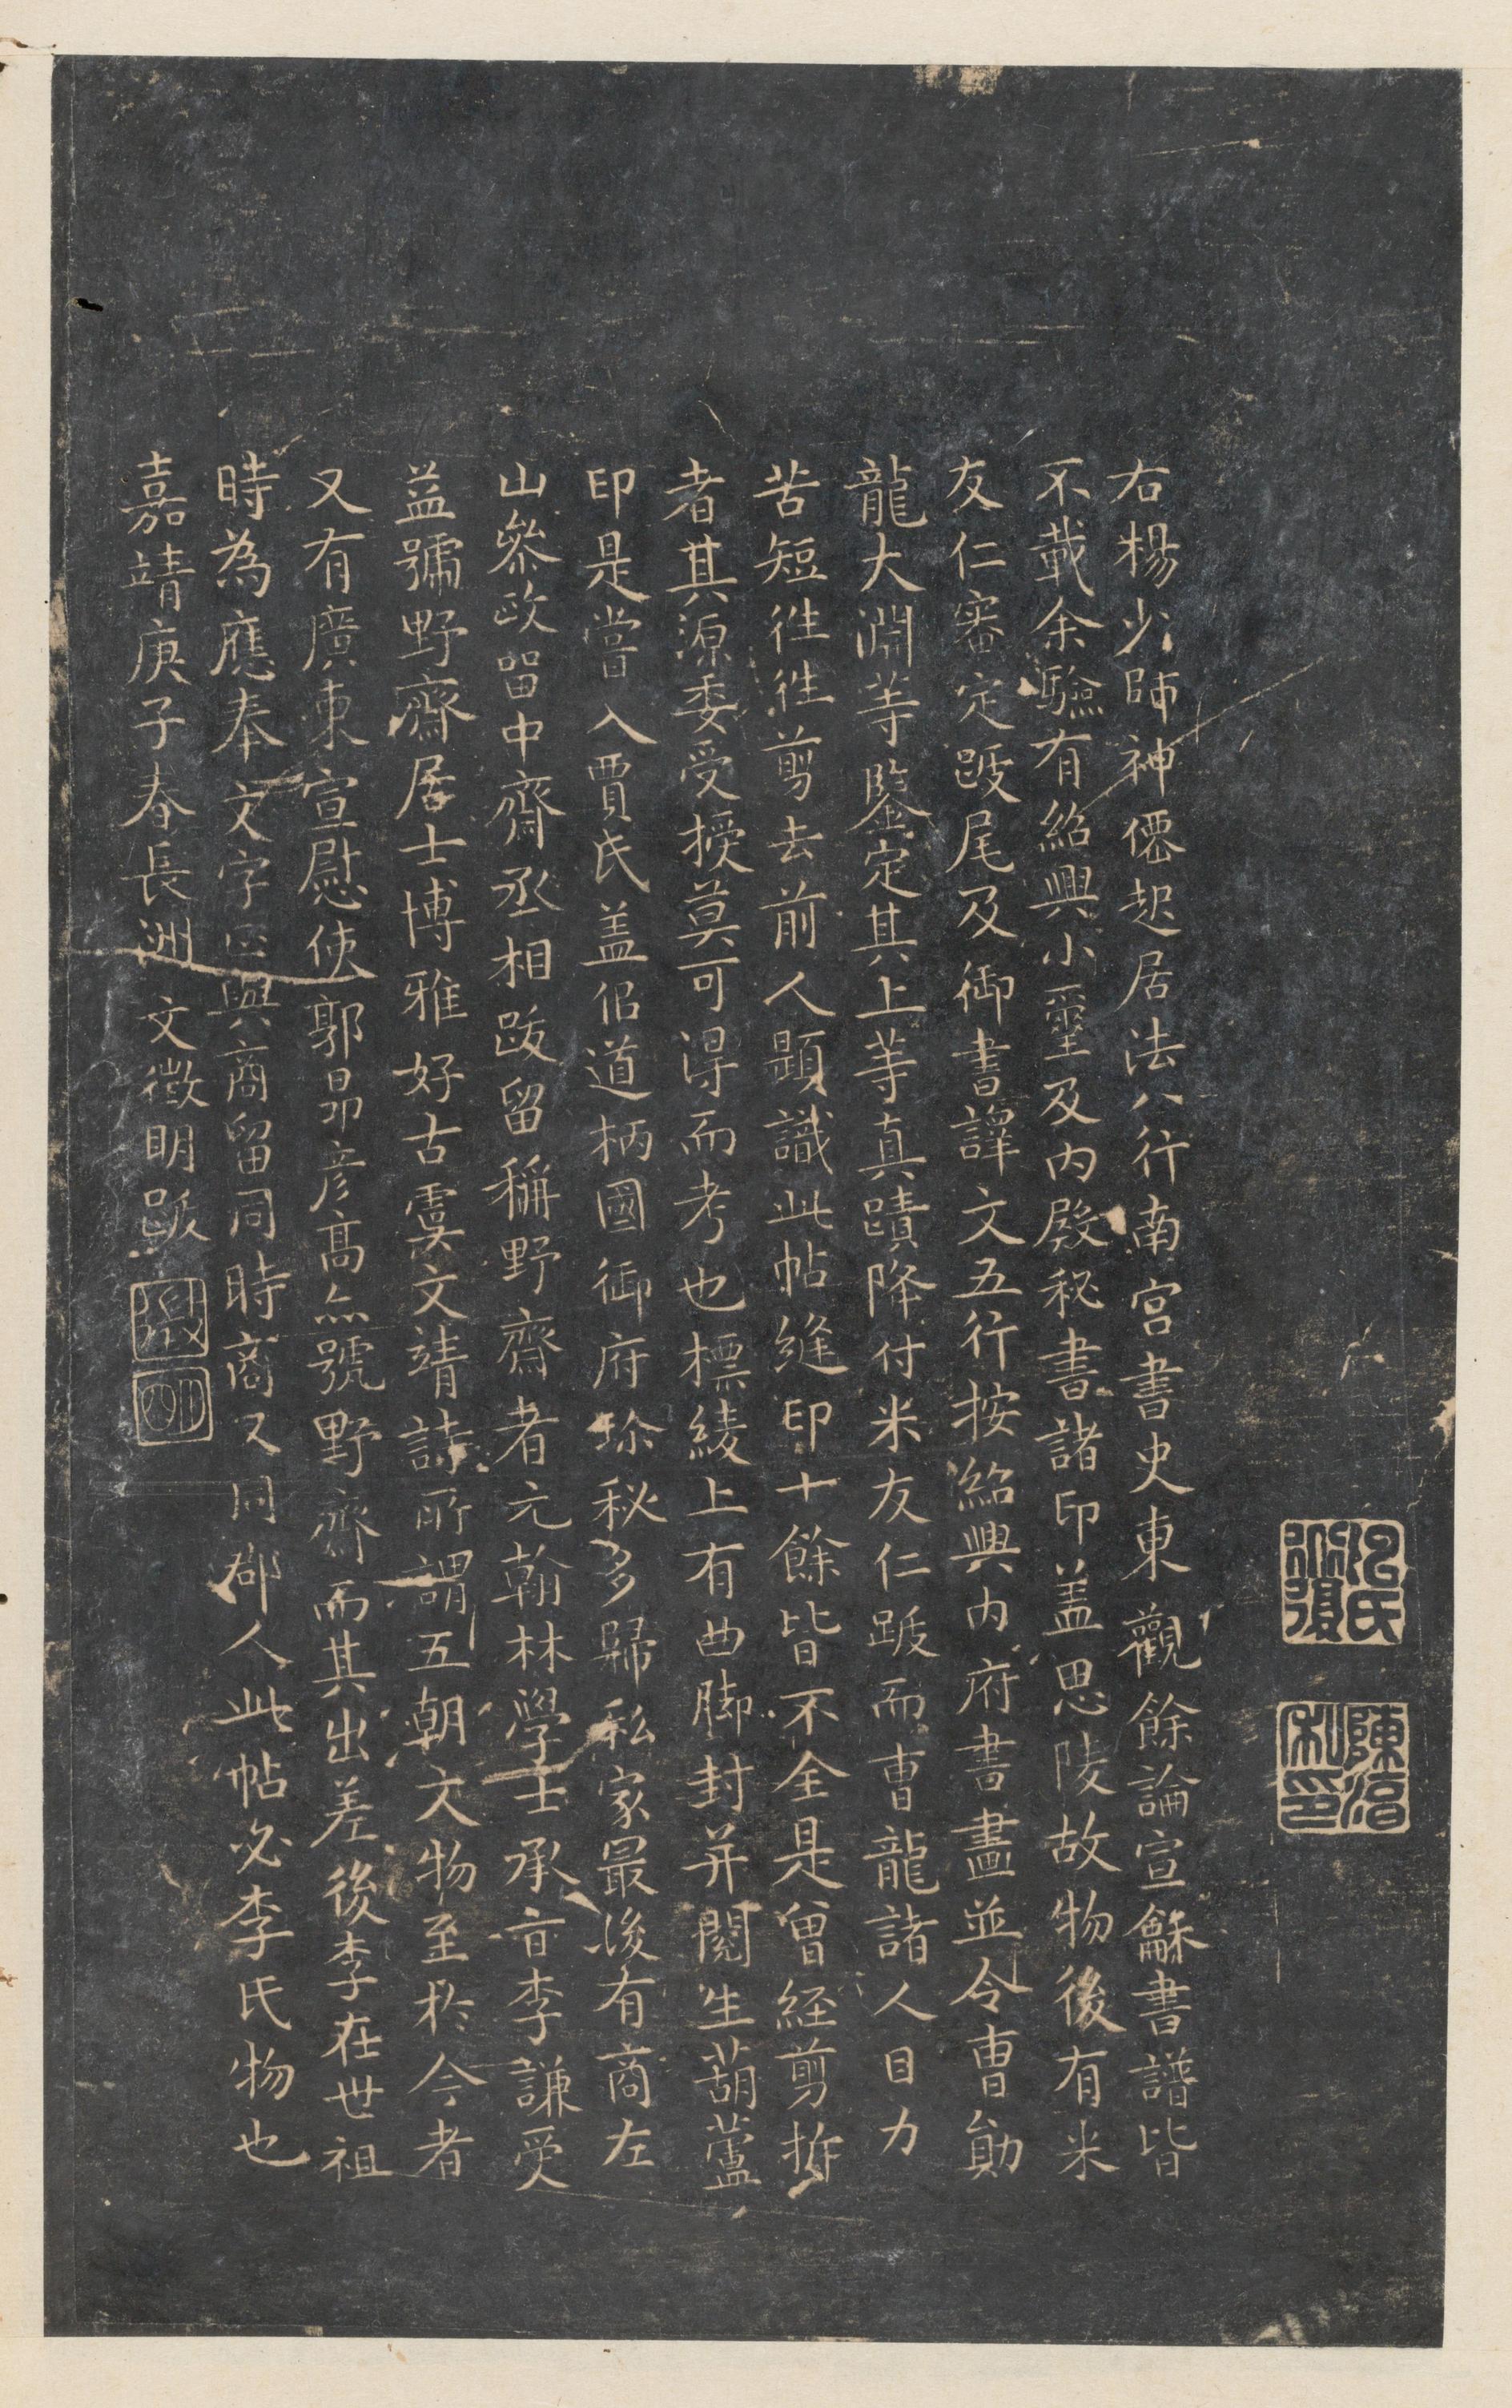 右楊少師神僊起居法八行南宮書史東觀餘論宣龢書譜皆
不載余驗有紹興小璽及內殿秘書諸印蓋思陵故物後有米
友仁審定跋尾及御書譯文五行按紹興內府書畫並令曹勛
龍大淵等鑒定其上等真蹟降付米友仁跋而曹龍諸人目力
苦短往往剪去前人題識此帖縫印十餘皆不全是曾經剪拆
者其源委受授莫可得而考也標綾上有曲脚封并閱生葫蘆
印是嘗入賈氏蓋佀道柄國御府珍秘多歸私家最後有商左
山參政留中齋丞相跋留稱野齋者元翰林學士承旨李謙受
益號野齋居士博雅好古虞文靖詩所謂五朝文物至於今者
又有廣東宣慰使郭昂彥高亦號野齋而其出差後李在世祖
時為應奉文字正與商留同時商又同郡人此帖必李氏物也
嘉靖庚子春長洲文徵明跋
徵
明
陳治私印